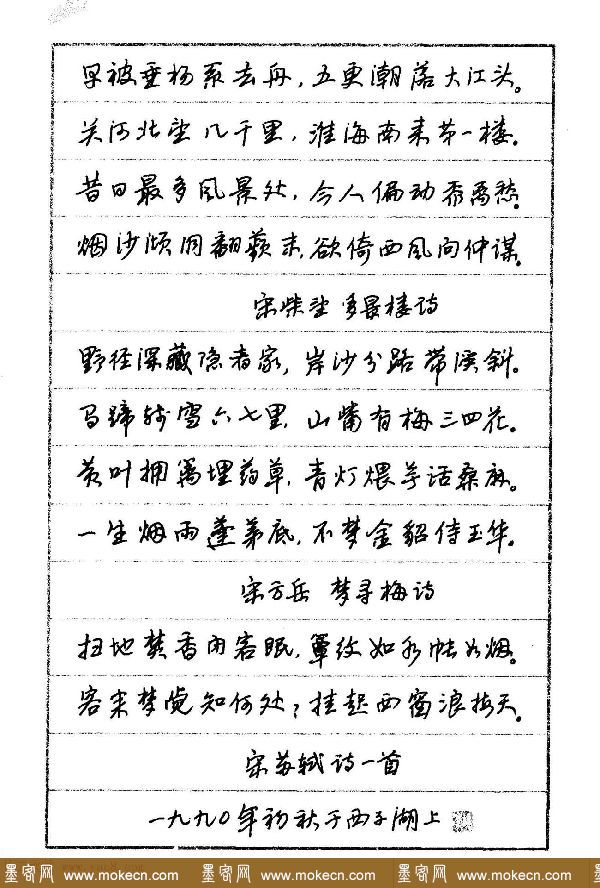 早被垂杨系去舟，五更潮落大江头。
关河北望几千里，淮海南来第一楼。
昔日最多风景处，今人偏动黍离愁。
烟沙澒洞翻蘋末，欲倚西风问仲谋。
宋柴望 多景楼诗
野径深藏隐者家，岸沙分路带溪斜。
马蹄残雪六七里，山嘴有梅三四花。
黄叶拥篱埋药草，青灯煨芋话桑麻。
一生烟雨蓬茅底，不梦金貂侍玉华。
宋方岳 梦寻梅诗
扫地焚香闭客眠，簟纹如水帐如烟。
客来梦觉知何处？挂起西窗浪接天。
宋苏轼诗一首
一九九〇年初秋于西子湖上
墨客网 www.mokecn.com 墨客网 www.mokecn.com 墨客网 www.mokecn.com